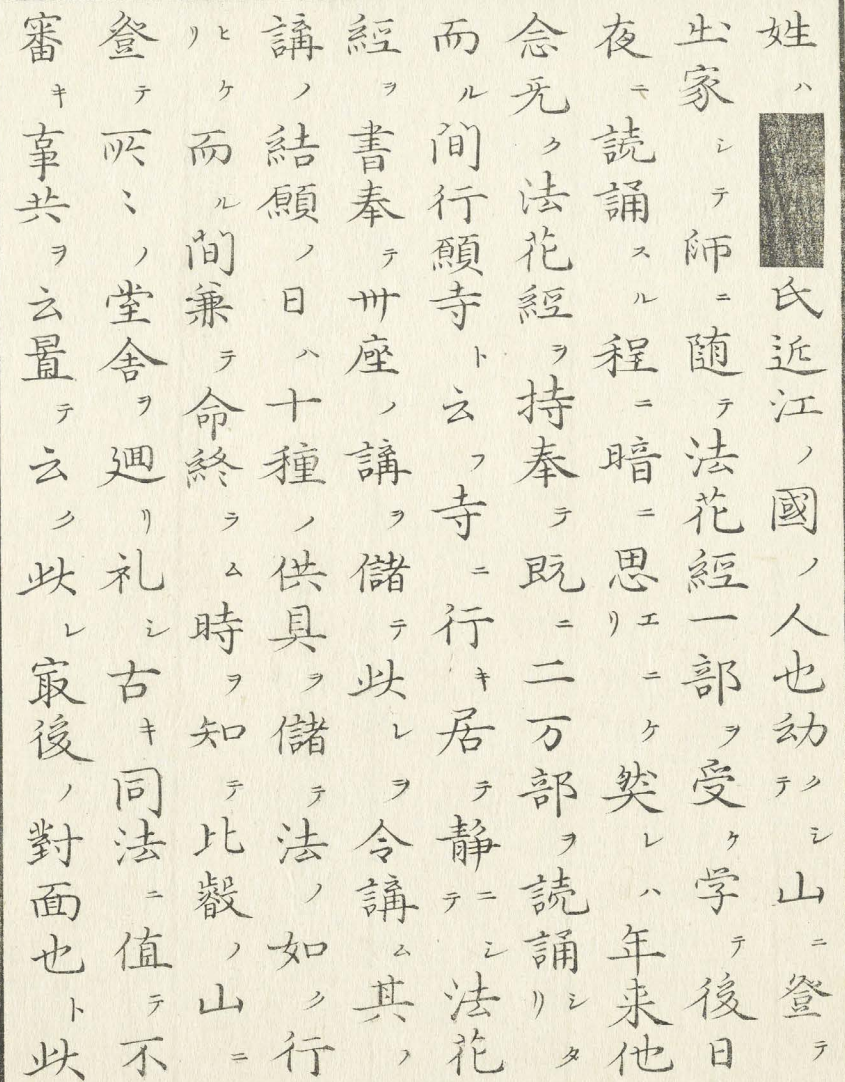 姓ハ氏近江ノ國ノ人也幼クシテ山ニ登テ
出家シテ師ニ随テ法花經一部ヲ受ケ学テ後日
夜ニ読誦スル程ニ暗ニ思エニケリ然レハ年来他
念无ク法花經ヲ持奉テ既ニ二万部ヲ読誦シタリ
而ル間行願寺ト云フ寺ニ行キ居テ静ニシテ法花
經ヲ書奉テ卅座ノ講ヲ儲テ此レヲ令講ム其ノ
講ノ結願ノ日ハ十種ノ供具ヲ儲テ法ノ如ク行
ヒケリ而ル間兼テ命終ラム時ヲ知テ比叡ノ山ニ
登テ所〻ノ堂舎ヲ廻リ礼シ古キ同法ニ値テ不
審キ事共ヲ云置テ云ク此レ㝡後ノ對面也ト此